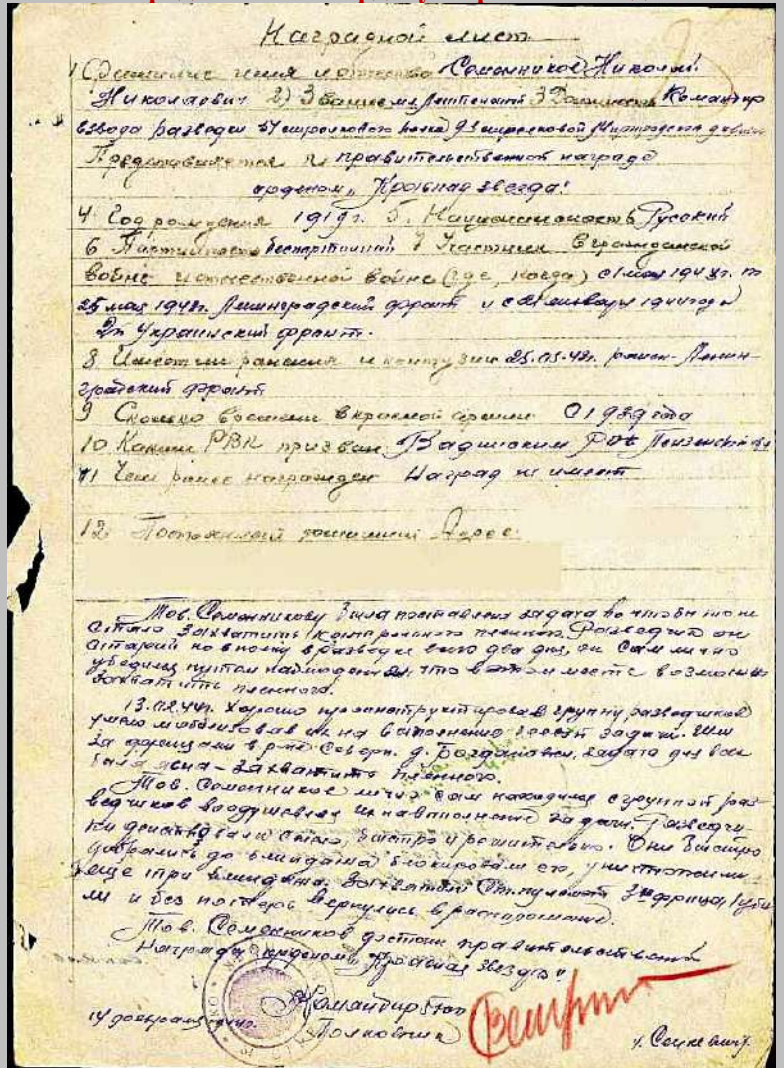 Наградной лист
1 Фамилие имя и отчество Семенников Николай
Николаевич 2) Звание мл лейтенант 3 Должность Командир
взвода разведки 51 стрелкового полка 93 стрелковой дивизии
Представляется к правительственной награде
орденом „Красная звезда"
4 Год рождения 1919г. 5. Национальность Русский
6 Партийность беспартийный 7 Участник в гражданской
войне и отечественной войне (где, когда) с 1 мая по
25 мая 1942г. Ленинградский фронт и с 1944 года
2й Украинский фронт.
8 Имеет ли ранения и контузии 25.05.42г. ранен - Ленин-
градский фронт
9 Сколько времени в красной армии с 1939 года
10 Каким РВК призван
11 Чем ранее награжден Наград не имеет
12 Постоянный домашний Адрес:
Тов. Семенникову была поставлена задача во что бы то не
стало захватить контрольного пленного. Разведчик он
старый но в полку в разведке всего два дня, он сам лично
убедился путем наблюдения, что в этом месте возможно
захватить пленного.
13.02.44г. Хорошо проинструктировав группу разведчиков
умело мобилизовав их на выполнение задачи. Шли
за фрицами в р-не северн. д. Богдановка, задача для всех
была ясна - захватить пленного.
Тов. Семенников лично сам находился с группой раз-
ведчиков воодушевляя их на выполнение задачи. Разведчи-
ки действовали смело, быстро и решительно. Они быстро
добрались до блиндажа блокировали его, уничтожили
еще три блиндажа, захватили Ст. пулемет 3х фрица, 1 уби-
ли и без потерь вернулись в расположение.
Тов. Семенников достоин правительственной
награды орденом „Красная звезда"
Командир 51сп
14 февраля Полковник